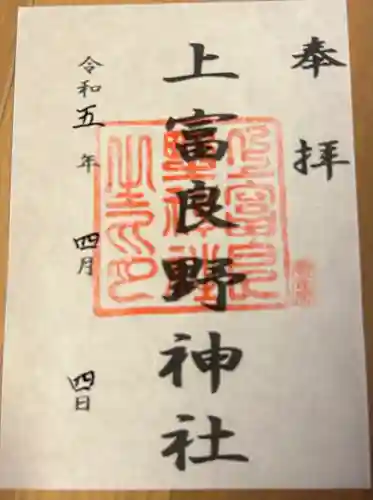 奉拝
上富良野神社
上富良野神社之印
令和五年 四月 四日